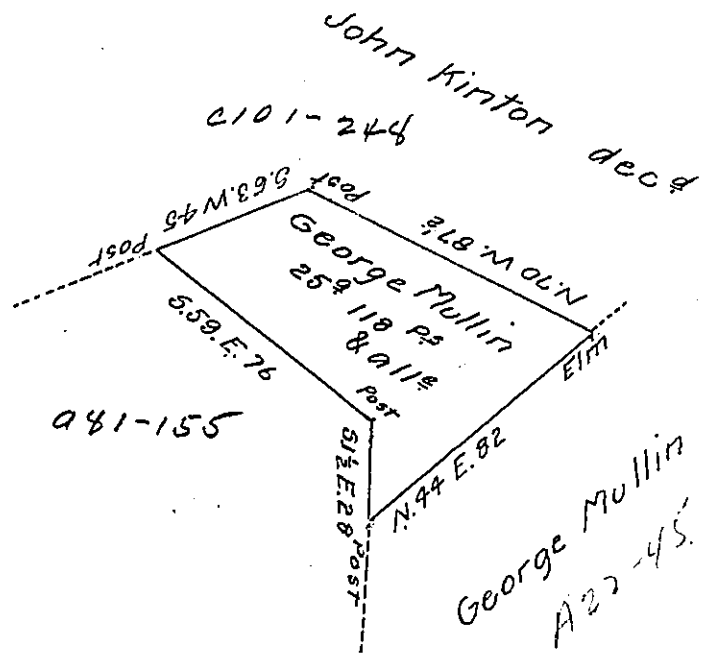 John Kinton dec.d
C101-248
S.63.W 45
Post
Post
N.70 W.87½
George Mullin
25a 118 ps
& alle
S.59.E.76
Post
Elm
a81-155
S1½E.28
Post
N.44 E.82
George Mullin
A27-45.